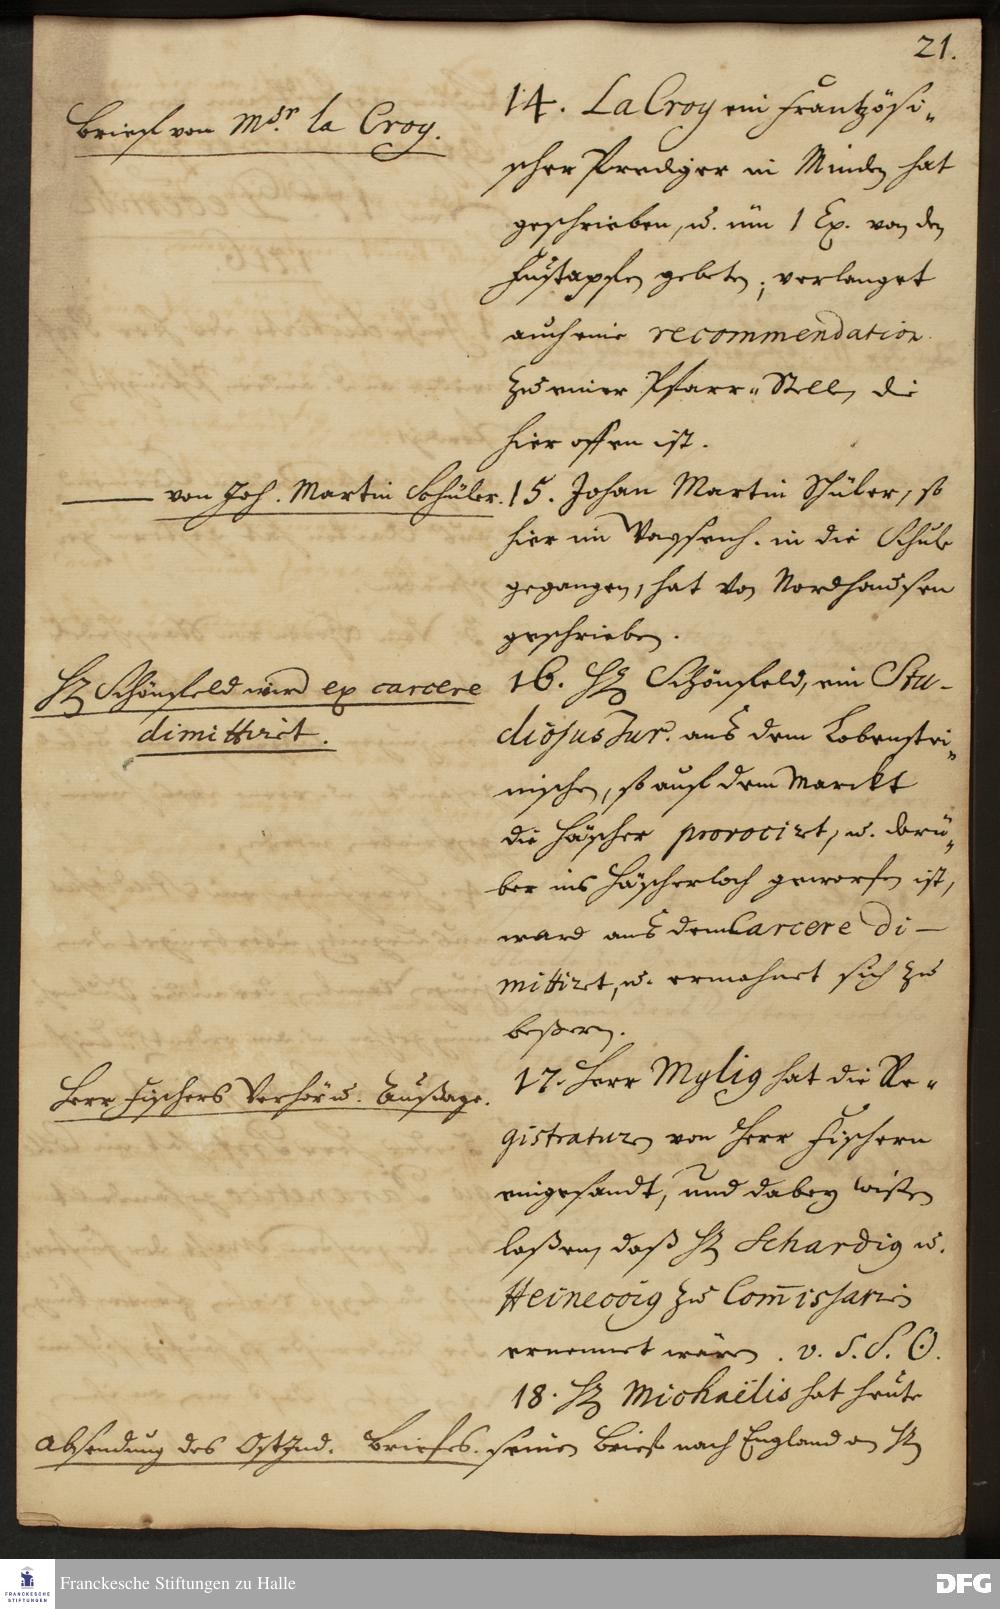 21.
Brief von Msr. la Croy.
14. La Croy ein Frantzösi-
scher Prediger in Minden hat
geschrieben, u. üm 1 Ex. von den
Fußtapfen gebeten; verlanget
auch eine recommendation
zu einer Pfarr-Stelle, die
hier offen ist.
von Joh. Martin Schüler.
15. Johan Martin Schüler, so
hier im Waysenh. in die Schule
gegangen, hat von Nordhausen
geschrieben.
H. Schönfeld wird ex carcere
dimittiret.
16. H. Schönfeld, ein Stu-
diosus Jur. aus dem Lobenstei-
nischen, so auf dem Marckt
die Häscher provociret, u. darü-
ber ins Häscherloch geworfen ist,
ward aus dem Carcere di-
mittiret, u. ermahnet sich zu
beßern.
Herr Fischers Verhör u. Außage.
17. Herr Mylig hat die Re-
gistraturen von Herr Fischern
eingesandt, und dabey wißen
laßen, daß H. Schardig u.
Heineccig zu Commissarien
ernennet wären. v. S. S. O.
18. H. Michaëlis hat heute
Absendung des OstInd. Briefes.
seinen Brief nach England an H.
Franckesche Stiftungen zu Halle
FRANCKESCHE
STIFTUNGEN
DFG